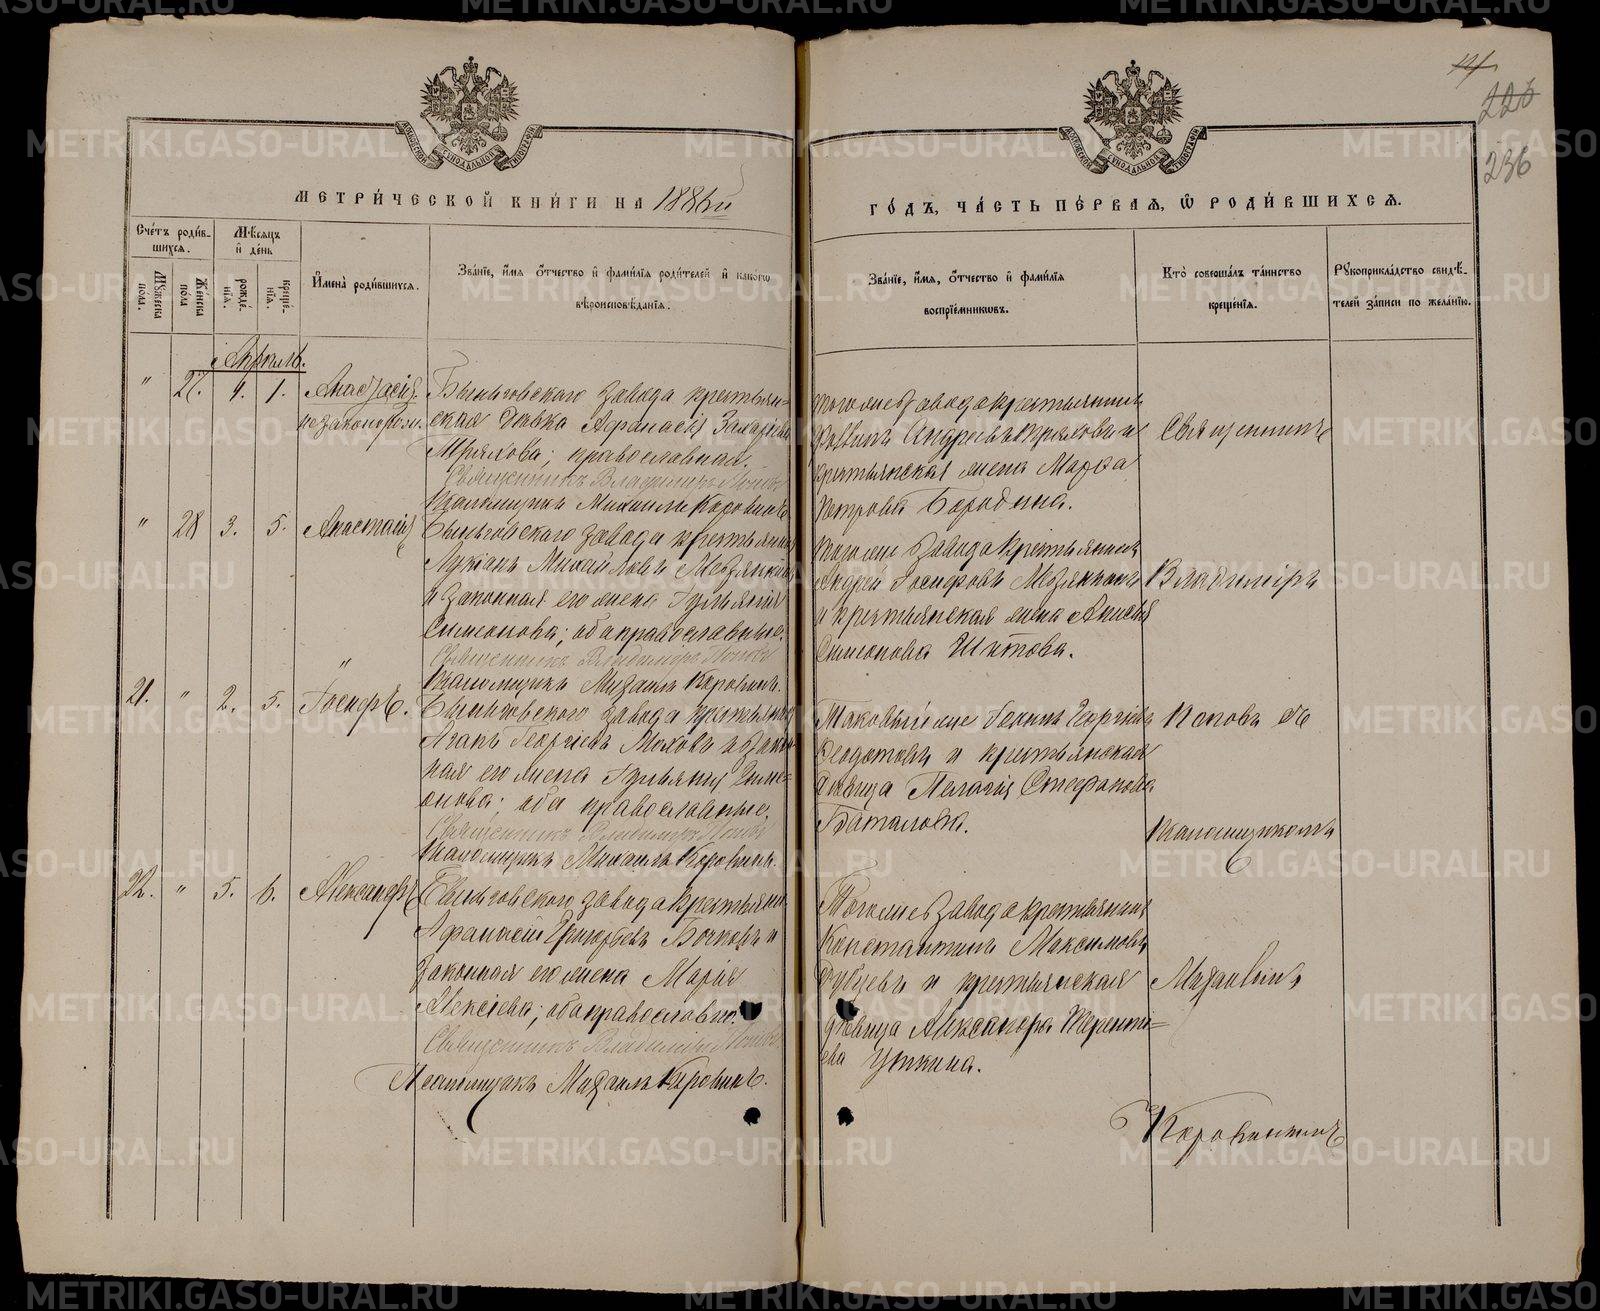 МЕТРИ́ЧЕСКОЙ КНИ́ГИ НА 1886й
ГО́ДЪ, ЧА́СТЬ ПЕ́РВАЯ, Ѡ РОДИ́ВШИХСЯ.
14
226
236
Сче́тъ роди́в-
шихся.
Мѣ́сяцъ
и де́нь
Имена̀ роди́вшихся.
Зва́нїе, и́мя ѻ҆́тчество и фами́лїя роди́телей и како́гѡ
вѣроисповѣ́данїя.
Му́жеска
по́ла.
Же́нска
по́ла
рожде́-
нїя.
креще́-
нїя.
Зва́нїе, и́мя, ѻ҆́тчество и фами́лїя
воспрїе́мникѡвъ.
Кто̀ соверша́лъ та́инство
креще́нїя.
Рукоприкла́дство свидѣ́-
телей за́писи по жела́нїю.
Апрѣль.
" 27. 4. 1. Анастасія
незаконорож.
Быньговскаго завода крестьян-
ская дѣвка Афанасія Захарова
православная.
Священникъ Владимиръ Поповъ
Псаломщикъ Михаилъ Коровинъ
тогоже завода крестьянинъ
Андреевъ
крестьянская жена Марѳа
Петрова Бородина.
Священникъ
" 28 3. 5. Анастасія
Быньговскаго завода крестьянинъ
Лукіанъ Михайловъ Мезянкинъ
и законная его жена Гульянія
Симеонова; оба православные.
Священникъ Владимиръ Поповъ
Псаломщикъ Михаилъ Коровинъ.
тогоже завода крестьянинъ
Андрей Іосифовъ Мезянкинъ
и крестьянская жена Анисія
Симеонова Шитова.
Владиміръ
21. " 2. 5. Іосифъ.
Быньговскаго завода крестьянинъ
Агапъ Георгіевъ Моховъ и закон-
ная его жена Гульянія Симе-
онова; оба православные.
Священникъ Владимиръ Поповъ
Псаломщикъ Михаилъ Коровинъ.
Таковыйже Георгіевъ
Ѳедотовъ и крестьянская
дѣвица Пелагія Стефанова
Баталова.
Поповъ съ
псаломщикомъ
22. " 5. 6. Александръ
Быньговскаго завода крестьянинъ
Афанасій Григорьевъ Бочковъ и
законная его жена Марія
Алексіева; оба православные.
Священникъ Владимиръ Поповъ
Псаломщикъ Михаилъ Коровинъ.
Тогоже завода крестьянинъ
Константинъ Максимовъ
и крестьянская
дѣвица Александра Терентї=
ева Уткина.
Михаиломъ
Коровинымъ
METRIKI.GASO-URAL.RU